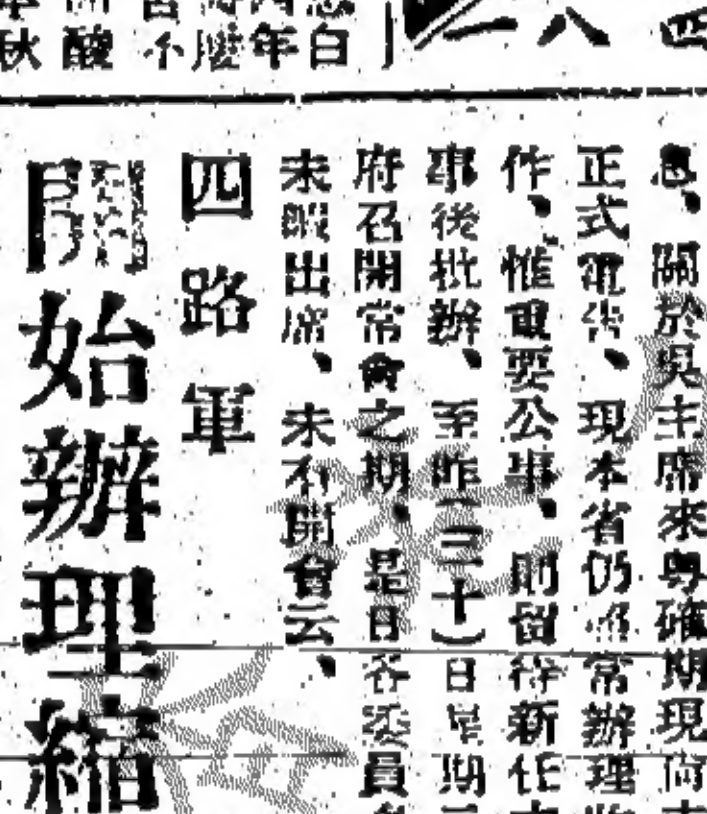 四
八
一
白
年
不
酸
秋
息、關於吳主席來粵確期現尚
正式電告、現本省仍照常辦理
作、惟重要公事、則留待新任
事後批辦、至昨(三十)日星期
府召開常會之期、是日各委員
未暇出席、未有開會云、
四路軍
開始辦理縮